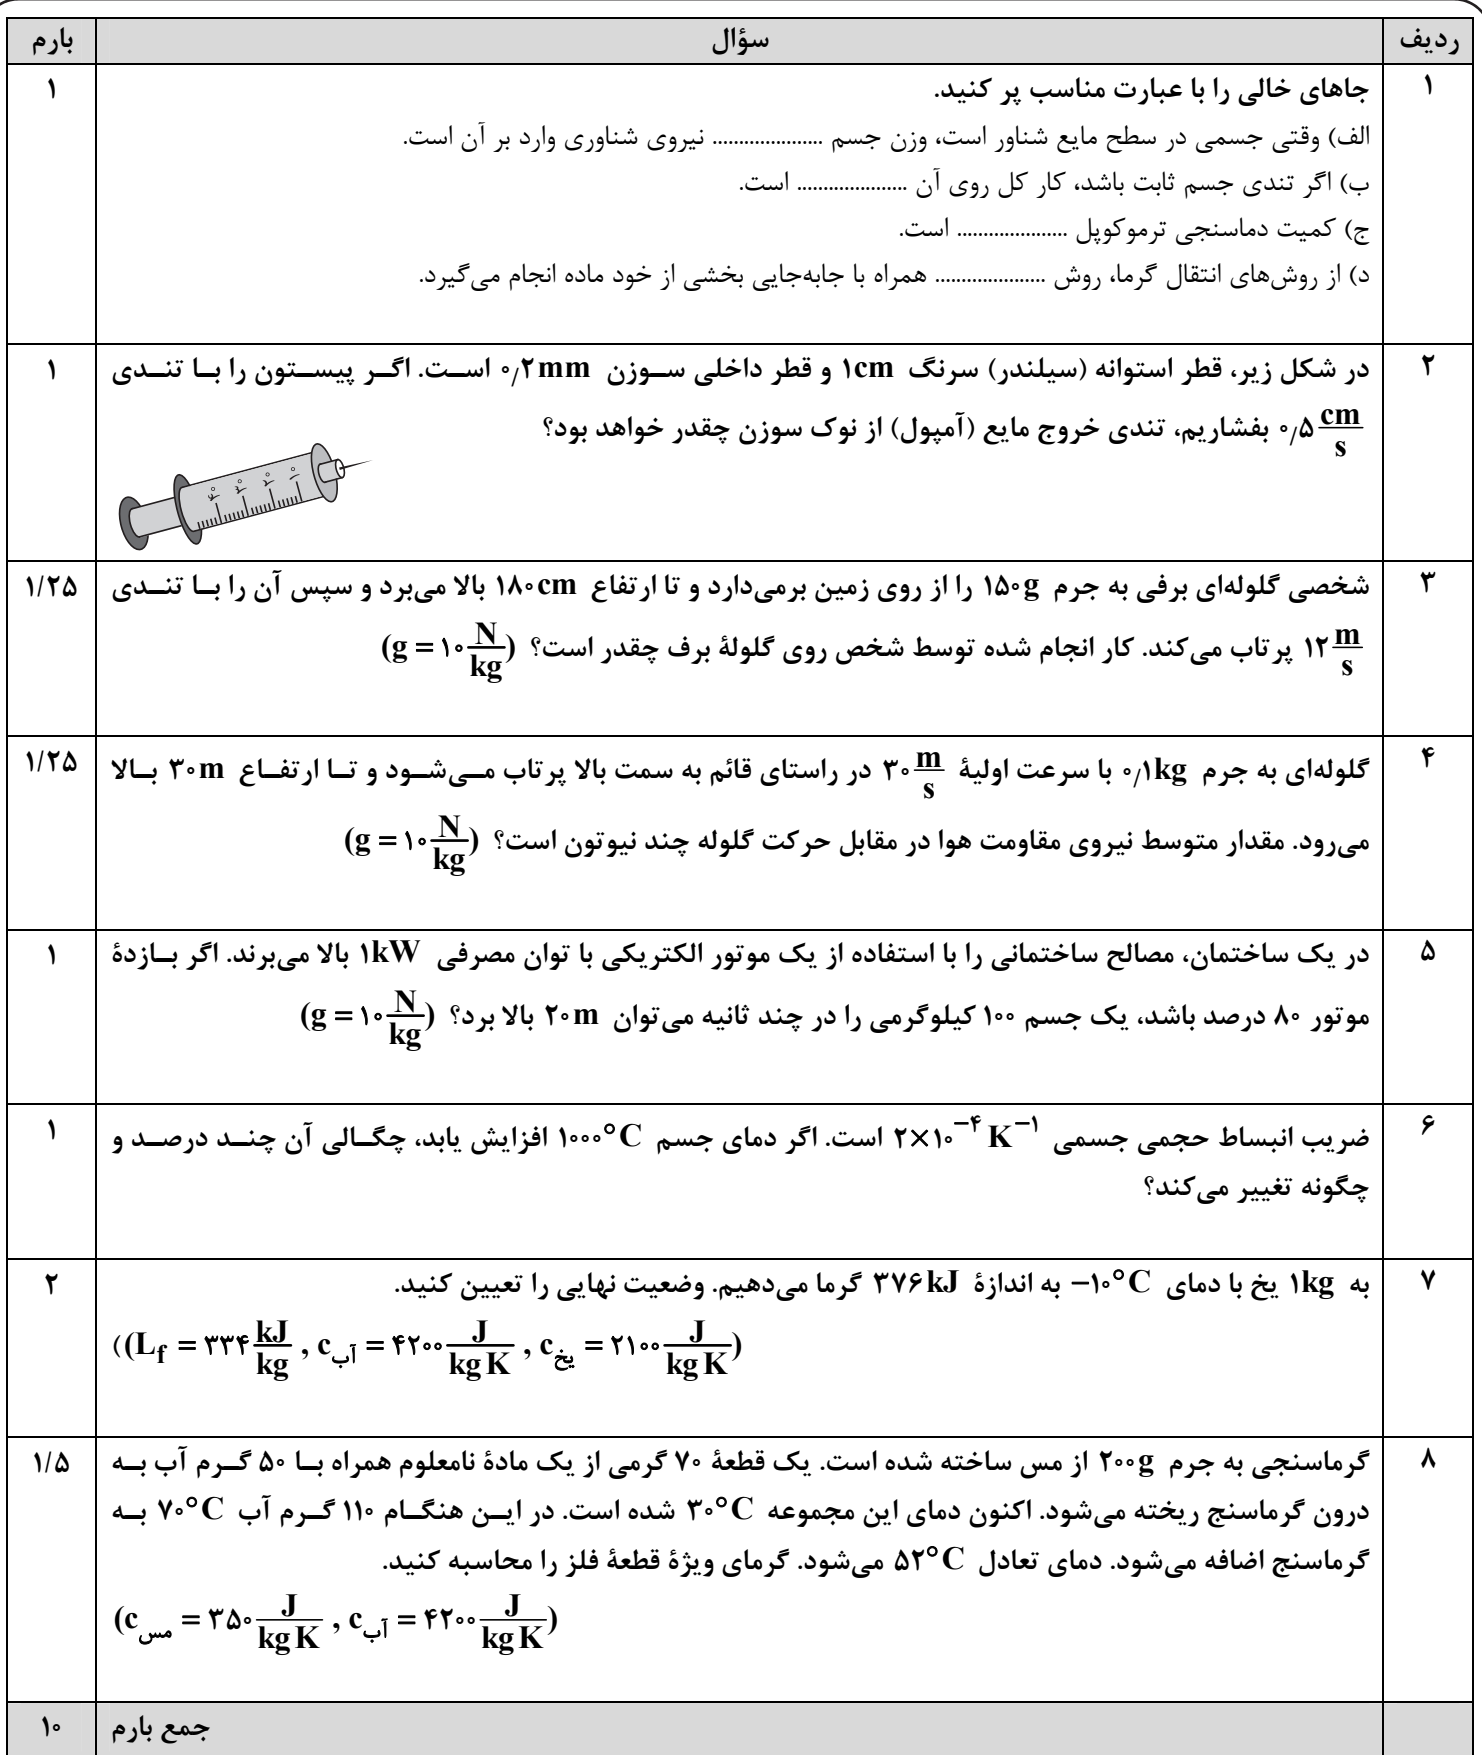 ردیف سؤال بارم
۱ جاهای خالی را با عبارت مناسب پر کنید. ۱
الف) وقتی جسمی در سطح مایع شناور است، وزن جسم .................... نیروی شناوری وارد بر آن است.
ب) اگر تندی جسم ثابت باشد، کار کل روی آن .................... است.
ج) کمیت دماسنجی ترموکوپل .................... است.
د) از روش‌های انتقال گرما، روش .................... همراه با جابه‌جایی بخشی از خود ماده انجام می‌گیرد.
۲ در شکل زیر، قطر استوانه (سیلندر) سرنگ ۱cm و قطر داخلی سوزن ۰/۲mm است. اگر پیستون را با تندی ۱
۰/۵ cm/s بفشاریم، تندی خروج مایع (آمپول) از نوک سوزن چقدر خواهد بود؟
۴۰ ۳۰ ۲۰ ۱۰
۳ شخصی گلوله‌ای برفی به جرم ۱۵۰g را از روی زمین برمی‌دارد و تا ارتفاع ۱۸۰cm بالا می‌برد و سپس آن را با تندی ۱/۲۵
۱۲ m/s پرتاب می‌کند. کار انجام شده توسط شخص روی گلولهٔ برف چقدر است؟ (g = ۱۰ N/kg)
۴ گلوله‌ای به جرم ۰/۱kg با سرعت اولیهٔ ۳۰ m/s در راستای قائم به سمت بالا پرتاب می‌شود و تا ارتفاع ۳۰m بالا ۱/۲۵
می‌رود. مقدار متوسط نیروی مقاومت هوا در مقابل حرکت گلوله چند نیوتون است؟ (g = ۱۰ N/kg)
۵ در یک ساختمان، مصالح ساختمانی را با استفاده از یک موتور الکتریکی با توان مصرفی ۱kW بالا می‌برند. اگر بازدهٔ ۱
موتور ۸۰ درصد باشد، یک جسم ۱۰۰ کیلوگرمی را در چند ثانیه می‌توان ۲۰m بالا برد؟ (g = ۱۰ N/kg)
۶ ضریب انبساط حجمی جسمی ۲×۱۰⁻⁴ K⁻¹ است. اگر دمای جسم ۱۰۰۰°C افزایش یابد، چگالی آن چند درصد و ۱
چگونه تغییر می‌کند؟
۷ به ۱kg یخ با دمای −۱۰°C به اندازهٔ ۳۷۶kJ گرما می‌دهیم. وضعیت نهایی را تعیین کنید. ۲
((L_f = ۳۳۴ kJ/kg , c_آب = ۴۲۰۰ J/kg K , c_یخ = ۲۱۰۰ J/kg K)
۸ گرماسنجی به جرم ۲۰۰g از مس ساخته شده است. یک قطعهٔ ۷۰ گرمی از یک مادهٔ نامعلوم همراه با ۵۰ گرم آب به ۱/۵
درون گرماسنج ریخته می‌شود. اکنون دمای این مجموعه ۳۰°C شده است. در این هنگام ۱۱۰ گرم آب ۷۰°C به
گرماسنج اضافه می‌شود. دمای تعادل ۵۲°C می‌شود. گرمای ویژهٔ قطعهٔ فلز را محاسبه کنید.
(c_مس = ۳۵۰ J/kg K , c_آب = ۴۲۰۰ J/kg K)
جمع بارم ۱۰